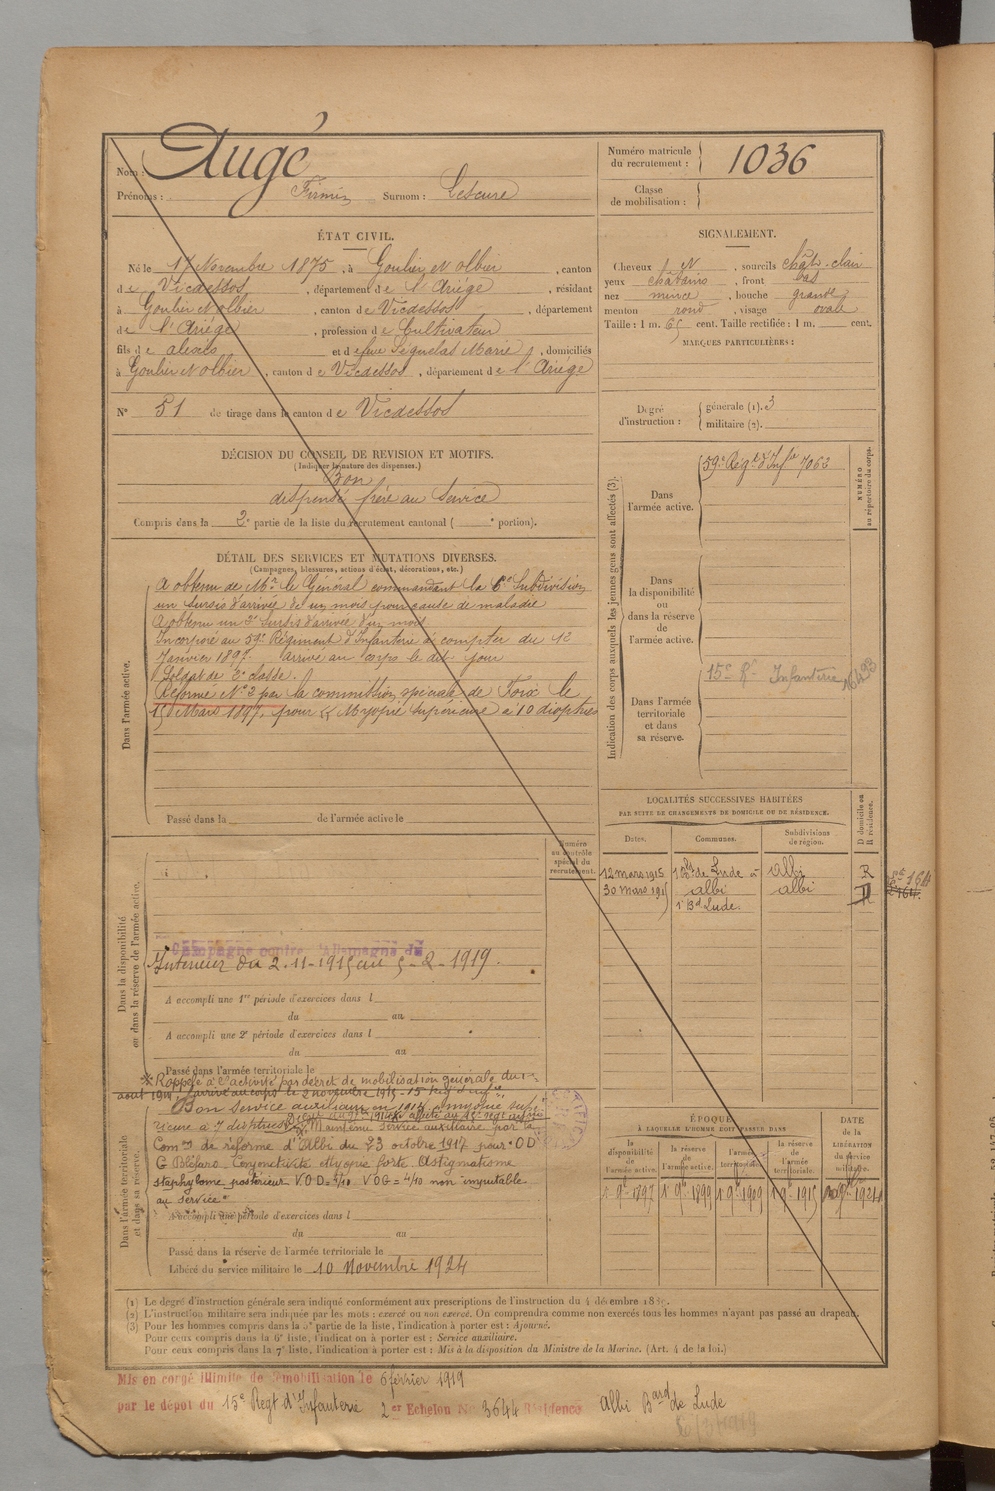 Nom : Augé
Prénoms : Firmin Surnom : Lescure
Numéro matricule du recrutement : 1036
Classe de mobilisation :
ÉTAT CIVIL.
Né le 17 Novembre 1875, à Goulier et Olbier, canton
de Vicdessos, département de l'Ariége, résidant
à Goulier et olbier, canton de Vicdessos, département
de l'Ariége, profession de Cultivateur
fils de alexis et de feue Séguelas Marie, domiciliés
à Goulier et olbier, canton de Vicdessos, département de l'Ariége
N° 51 de tirage dans le canton de Vicdessos
SIGNALEMENT.
Cheveux et, sourcils chât-clair
yeux châtains, front bas
nez mince, bouche grande
menton rond, visage ovale
Taille : 1 m. 65 cent. Taille rectifiée : 1 m. cent.
MARQUES PARTICULIÈRES :
Degré d'instruction : générale (1). 3
militaire (2).
DÉCISION DU CONSEIL DE REVISION ET MOTIFS.
(Indiquer la nature des dispenses.)
Bon
dispensé frère au Service
Compris dans la 2e partie de la liste du recrutement cantonal ( e portion).
DÉTAIL DES SERVICES ET MUTATIONS DIVERSES.
(Campagnes, blessures, actions d'éclat, décorations, etc.)
Dans l'armée active.
A obtenu de Mr le Général commandant la 6e Subdivision
un Sursis d'arrivée de un mois pour cause de maladie
A obtenu un 2e Sursis d'arrivée d'un mois
Incorporé au 59e Régiment d'Infanterie à compter du 12
Janvier 1897. arrivé au corps le dit jour
Soldat de 2e classe.
Réformé N° 2 par la commission spéciale de Foix le
15 Mars 1897, pour Myopie supérieure à 10 dioptries
Passé dans la de l'armée active le
Indication des corps auxquels les jeunes gens sont affectés (3).
NUMÉRO au répertoire du corps.
Dans l'armée active.
59e Régt d'Infie 7062
Dans la disponibilité ou dans la réserve de l'armée active.
Dans l'armée territoriale et dans sa réserve.
15e Rt Infanterie
LOCALITÉS SUCCESSIVES HABITÉES
PAR SUITE DE CHANGEMENTS DE DOMICILE OU DE RÉSIDENCE.
Dates. Communes. Subdivisions de région. D domicile ou R résidence.
12 mars 1915 1 Bd de Lude à albi R
30 mars 1915 albi albi
1 Bd Lude.
Numéro au contrôle spécial du recrutement.
Dans la disponibilité ou dans la réserve de l'armée active.
Campagne contre l'Allemagne du
Intérieur du 2-11-1915 au 5-2-1919.
A accompli une 1re période d'exercices dans l
du au
A accompli une 2e période d'exercices dans l
du au
Passé dans l'armée territoriale le
Dans l'armée territoriale et dans sa réserve.
Rappelé à l'activité par décret de mobilisation générale du 1er
août 1914. arrivé au corps le 2 novembre 1915 - 15e Regt d'Infie
Bon service auxiliaire en 1915 myopie supé-
rieure à 7 dioptries Maintenu Service auxiliaire par la
Comon de réforme d'Albi du 23 octobre 1917 pour OD
G Bléfaro Conjonctivite Myopie forte. Astigmatisme
staphylome postérieur VOD = 4/10 VOG = 4/10 non imputable
au service.
A accompli une période d'exercices dans l
du au
Passé dans la réserve de l'armée territoriale le
Libéré du service militaire le 10 Novembre 1924
ÉPOQUE
À LAQUELLE L'HOMME DOIT PASSER DANS
la disponibilité de l'armée active. la réserve de l'armée active. l'armée territoriale. la réserve de l'armée territoriale. DATE de la LIBÉRATION du service militaire.
1 9bre 1897 1 9bre 1899 1 9bre 1909 1 9bre 1915
(1) Le degré d'instruction générale sera indiqué conformément aux prescriptions de l'instruction du 4 décembre 1889.
(2) L'instruction militaire sera indiquée par les mots : exercé ou non exercé. On comprendra comme non exercés tous les hommes n'ayant pas passé au drapeau.
(3) Pour les hommes compris dans la 5e partie de la liste, l'indication à porter est : Ajourné.
Pour ceux compris dans la 6e liste, l'indication à porter est : Service auxiliaire.
Pour ceux compris dans la 7e liste, l'indication à porter est : Mis à la disposition du Ministre de la Marine. (Art. 4 de la loi.)
Mis en congé illimité de démobilisation le 6 février 1919
par le dépôt du 15e Regt d'Infanterie 2er Echelon N° 3644 Résidence Albi Bard de Lude